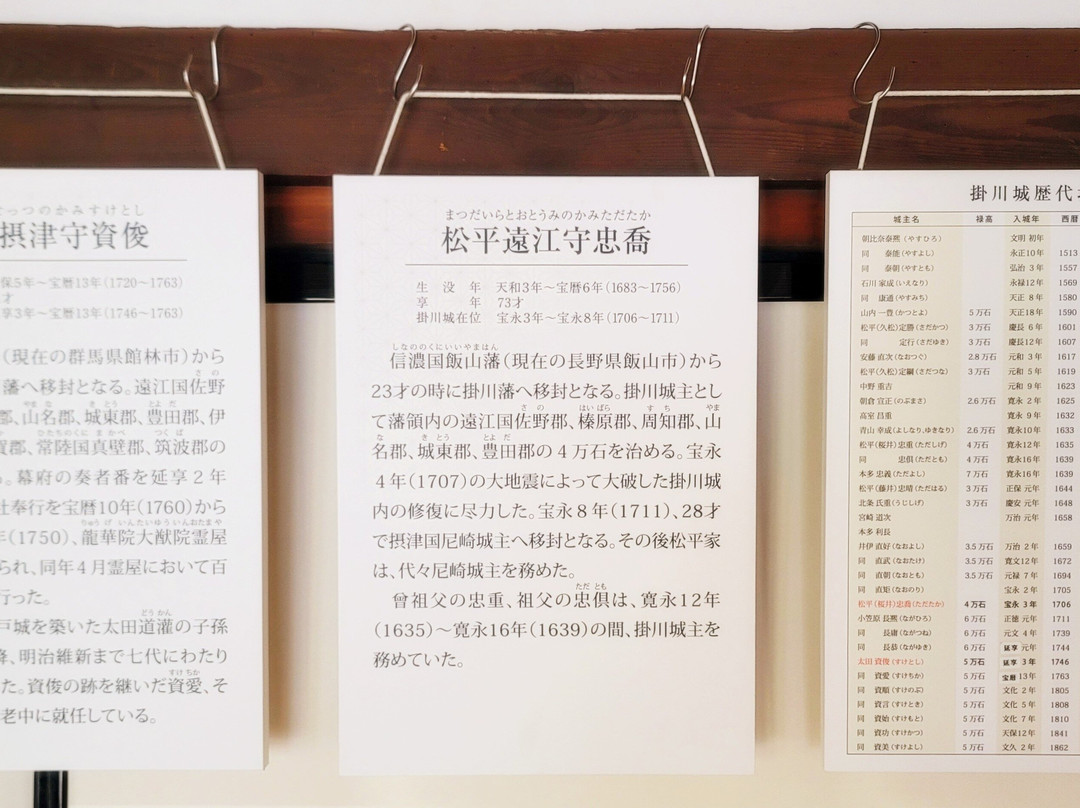 っつのかみすけとし
摂津守資俊
保5年～宝暦13年（1720～1763）
才
享3年～宝暦13年（1746～1763）
（現在の群馬県館林市）から
藩へ移封となる。遠江国佐野
郡、山名郡、城東郡、豊田郡、伊
賀郡、常陸国真壁郡、筑波郡の
。幕府の奏者番を延享２年
社奉行を宝暦10年（1760）から
年（1750）、龍華院大猷院霊屋
られ、同年４月霊屋において百
行った。
戸城を築いた太田道灌の子孫
降、明治維新まで七代にわたり
た。資俊の跡を継いだ資愛、そ
老中に就任している。
まつだいらとおとうみのかみただたか
松平遠江守忠喬
生没年 天和3年～宝暦6年（1683～1756）
享年 73才
掛川城在位 宝永3年～宝永8年（1706～1711）
しなののくにいいやまはん
信濃国飯山藩（現在の長野県飯山市）から
23才の時に掛川藩へ移封となる。掛川城主とし
さの はいばら すち やま
て藩領内の遠江国佐野郡、榛原郡、周知郡、山
な きとう とよだ
名郡、城東郡、豊田郡の４万石を治める。宝永
４年（1707）の大地震によって大破した掛川城
内の修復に尽力した。宝永８年（1711）、28才
で摂津国尼崎城主へ移封となる。その後松平家
は、代々尼崎城主を務めた。
ただとも
曾祖父の忠重、祖父の忠倶は、寛永12年
（1635）～寛永16年（1639）の間、掛川城主を
務めていた。
掛川城歴代
城主名 禄高 入城年 西暦
朝比奈泰熙（やすひろ） 文明 初年
同 泰能（やすよし） 永正10年 1513
同 泰朝（やすとも） 弘治 3年 1557
石川 家成（いえなり） 永禄12年 1569
同 康通（やすみち） 天正 8年 1580
山内 一豊（かつとよ） 5万石 天正18年 1590
松平（久松）定勝（さだかつ） 3万石 慶長 6年 1601
同 定行（さだゆき） 3万石 慶長12年 1607
安藤 直次（なおつぐ） 2.8万石 元和 3年 1617
松平（久松）定綱（さだつな） 3万石 元和 5年 1619
中野 重吉 元和 9年 1623
朝倉 宣正（のぶまさ） 2.6万石 寛永 2年 1625
高室 昌重 寛永 9年 1632
青山 幸成（よしなり、ゆきなり） 2.6万石 寛永10年 1633
松平（桜井）忠重（ただしげ） 4万石 寛永12年 1635
同 忠倶（ただとも） 4万石 寛永16年 1639
本多 忠義（ただよし） 7万石 寛永16年 1639
松平（藤井）忠晴（ただはる） 3万石 正保 元年 1644
北条 氏重（うじしげ） 3万石 慶安 元年 1648
宮崎 道次 万治 元年 1658
本多 利長
井伊 直好（なおよし） 3.5万石 万治 2年 1659
同 直武（なおたけ） 3.5万石 寛文12年 1672
同 直朝（なおとも） 3.5万石 元禄 7年 1694
同 直矩（なおのり） 宝永 2年 1705
松平（桜井）忠喬（ただたか） 4万石 宝永 3年 1706
小笠原 長熙（ながひろ） 6万石 正徳 元年 1711
同 長庸（ながつね） 6万石 元文 4年 1739
同 長恭（ながゆき） 6万石 延享 元年 1744
太田 資俊（すけとし） 5万石 延享 3年 1746
同 資愛（すけちか） 5万石 宝暦13年 1763
同 資順（すけのぶ） 5万石 文化 2年 1805
同 資言（すけとき） 5万石 文化 5年 1808
同 資始（すけもと） 5万石 文化 7年 1810
同 資功（すけかつ） 5万石 天保12年 1841
同 資美（すけよし） 5万石 文久 2年 1862